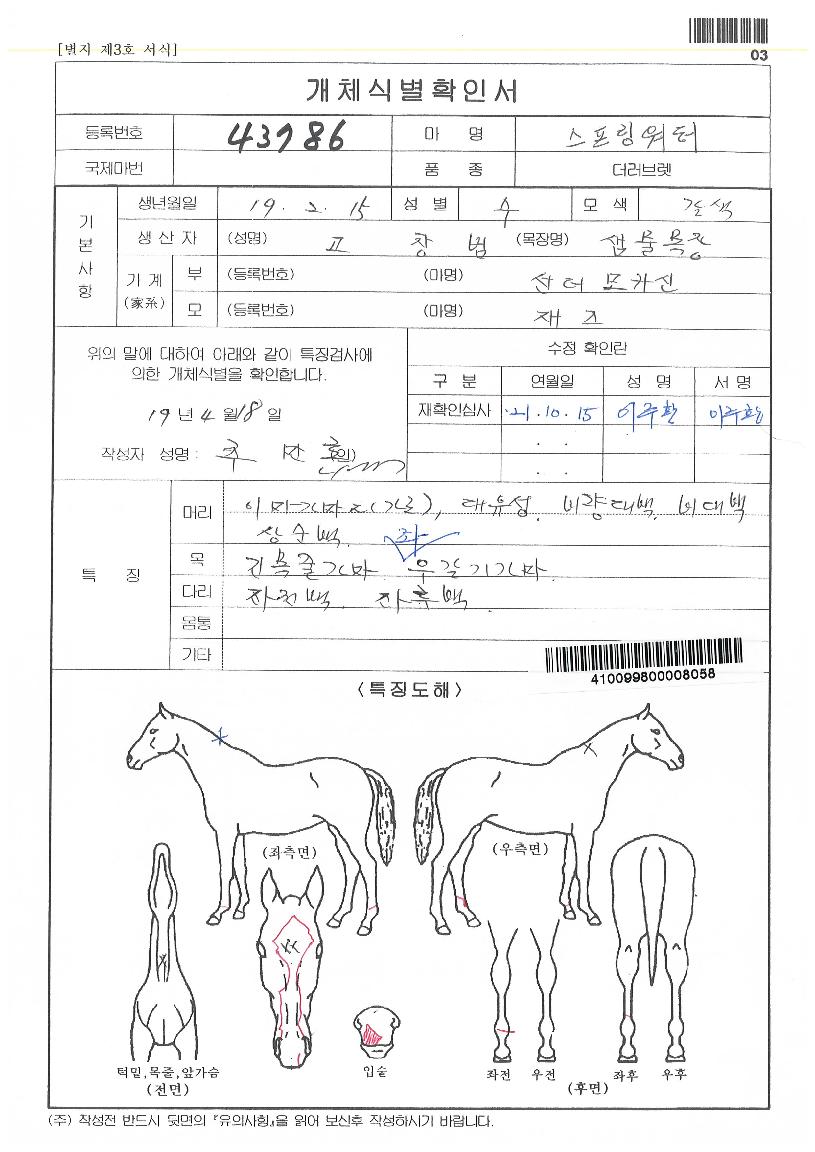 [별지 제3호 서식]
03
개체식별확인서
등록번호 43786 마 명 스프링워터
국제마번 품 종 더러브렛
기본사항
생년월일 19. 2. 15 성 별 수 모 색 갈색
생 산 자 (성명) 고 창 범 (목장명) 샘물목장
기 계 (家系) 부 (등록번호) (마명) 산더 모카신
모 (등록번호) (마명) 재즈
위의 말에 대하여 아래와 같이 특징검사에
의한 개체식별을 확인합니다.
19 년 4 월 18 일
작성자 성명 : (인)
수정 확인란
구 분 연월일 성 명 서 명
재확인심사 '21. 10. 15 이주환 이주환
. .
. .
특 징
머리 이마가마2(가로), 대유성, 비량대백, 비대백
상순백
좌
목 긴목줄가마 우갈기가마
다리 좌전백, 좌후백
몸통
기타
410099800008058
<특징도해>
(좌측면) (우측면)
턱밑,목줄,앞가슴
(전면)
입술
좌전 우전 좌후 우후
(후면)
(주) 작성전 반드시 뒷면의 『유의사항』을 읽어 보신후 작성하시기 바랍니다.